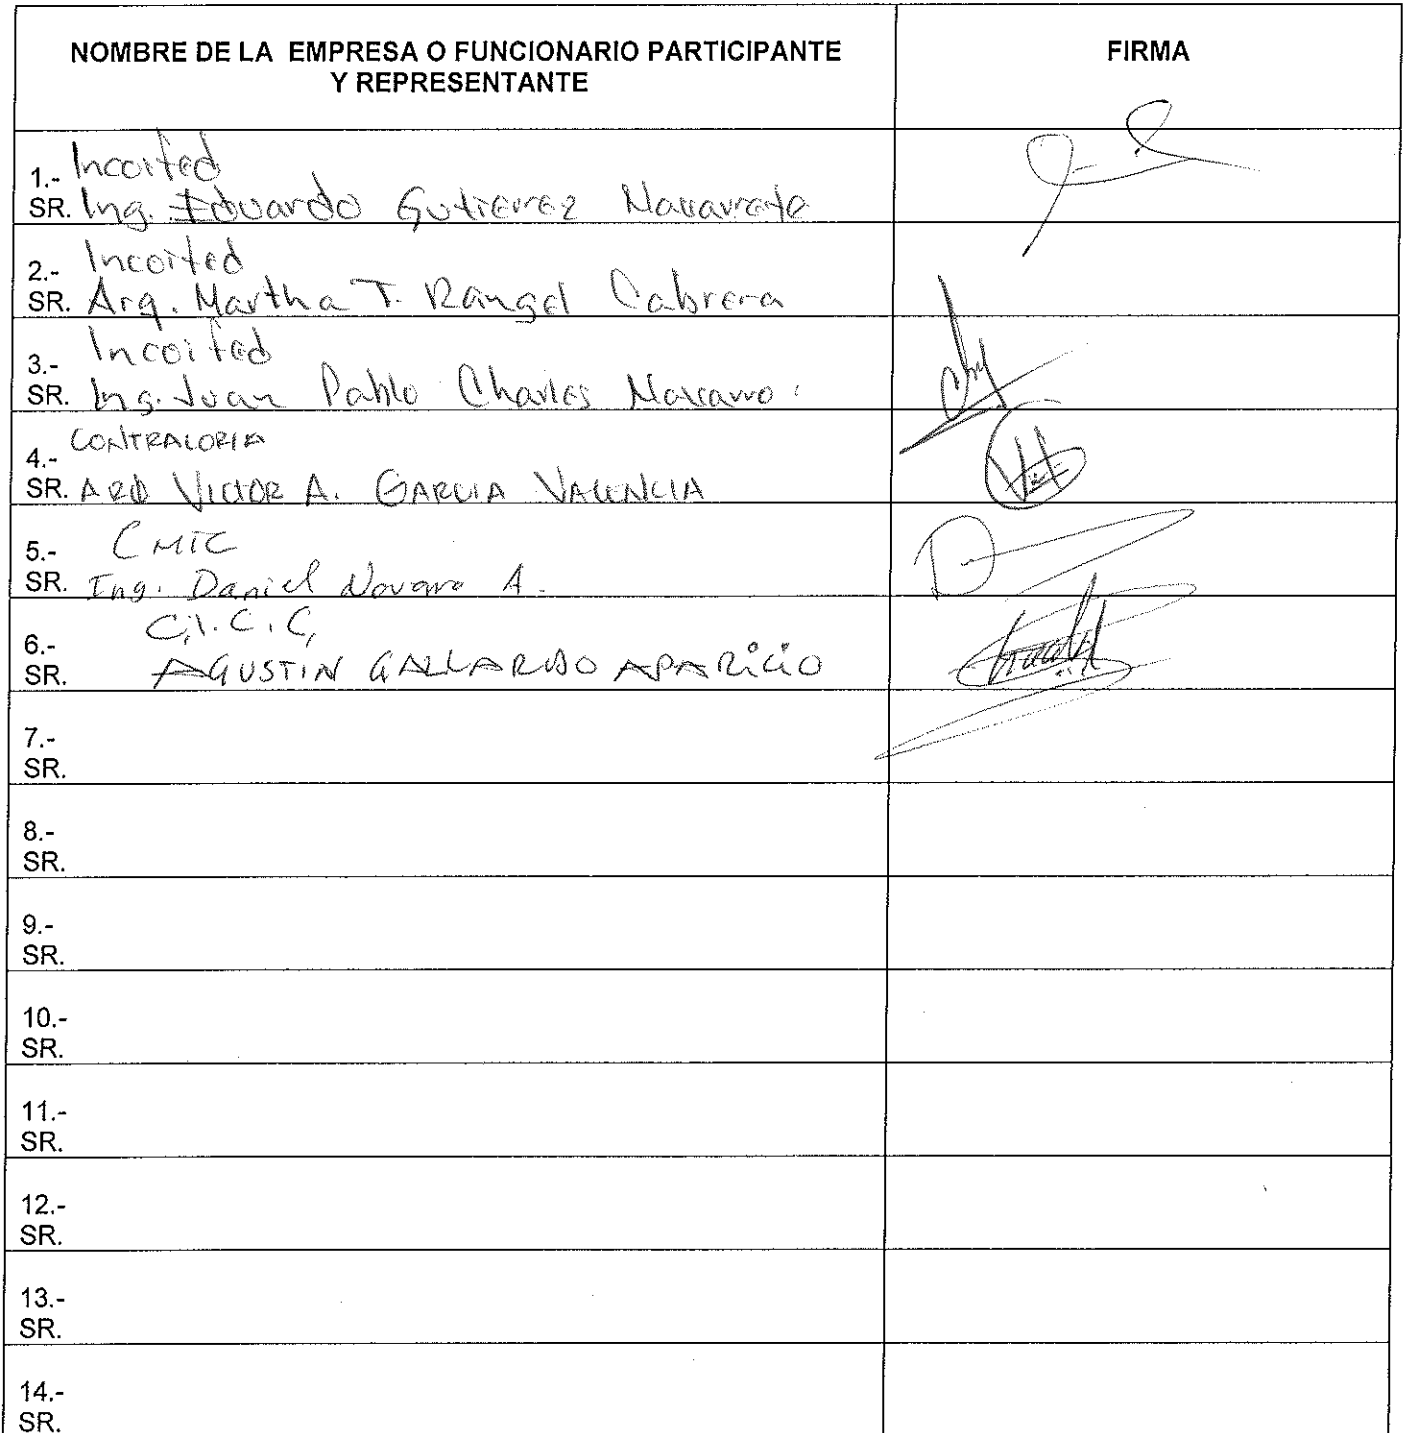 NOMBRE DE LA EMPRESA O FUNCIONARIO PARTICIPANTE
Y REPRESENTANTE
FIRMA
1.- Incoifed
SR. Ing. Eduardo Gutierrez Navarrete
2.- Incoifed
SR. Arq. Martha T. Rangel Cabrera
3.- Incoifed
SR. Ing. Juan Pablo Charles Navarro
4.- CONTRALORIA
SR. ARQ VICTOR A. GARCIA VALENCIA
5.- CMIC
SR. Ing. Daniel Navarro A.
6.- C.I.C.C,
SR. AGUSTIN GALLARDO APARICIO
7.-
SR.
8.-
SR.
9.-
SR.
10.-
SR.
11.-
SR.
12.-
SR.
13.-
SR.
14.-
SR.